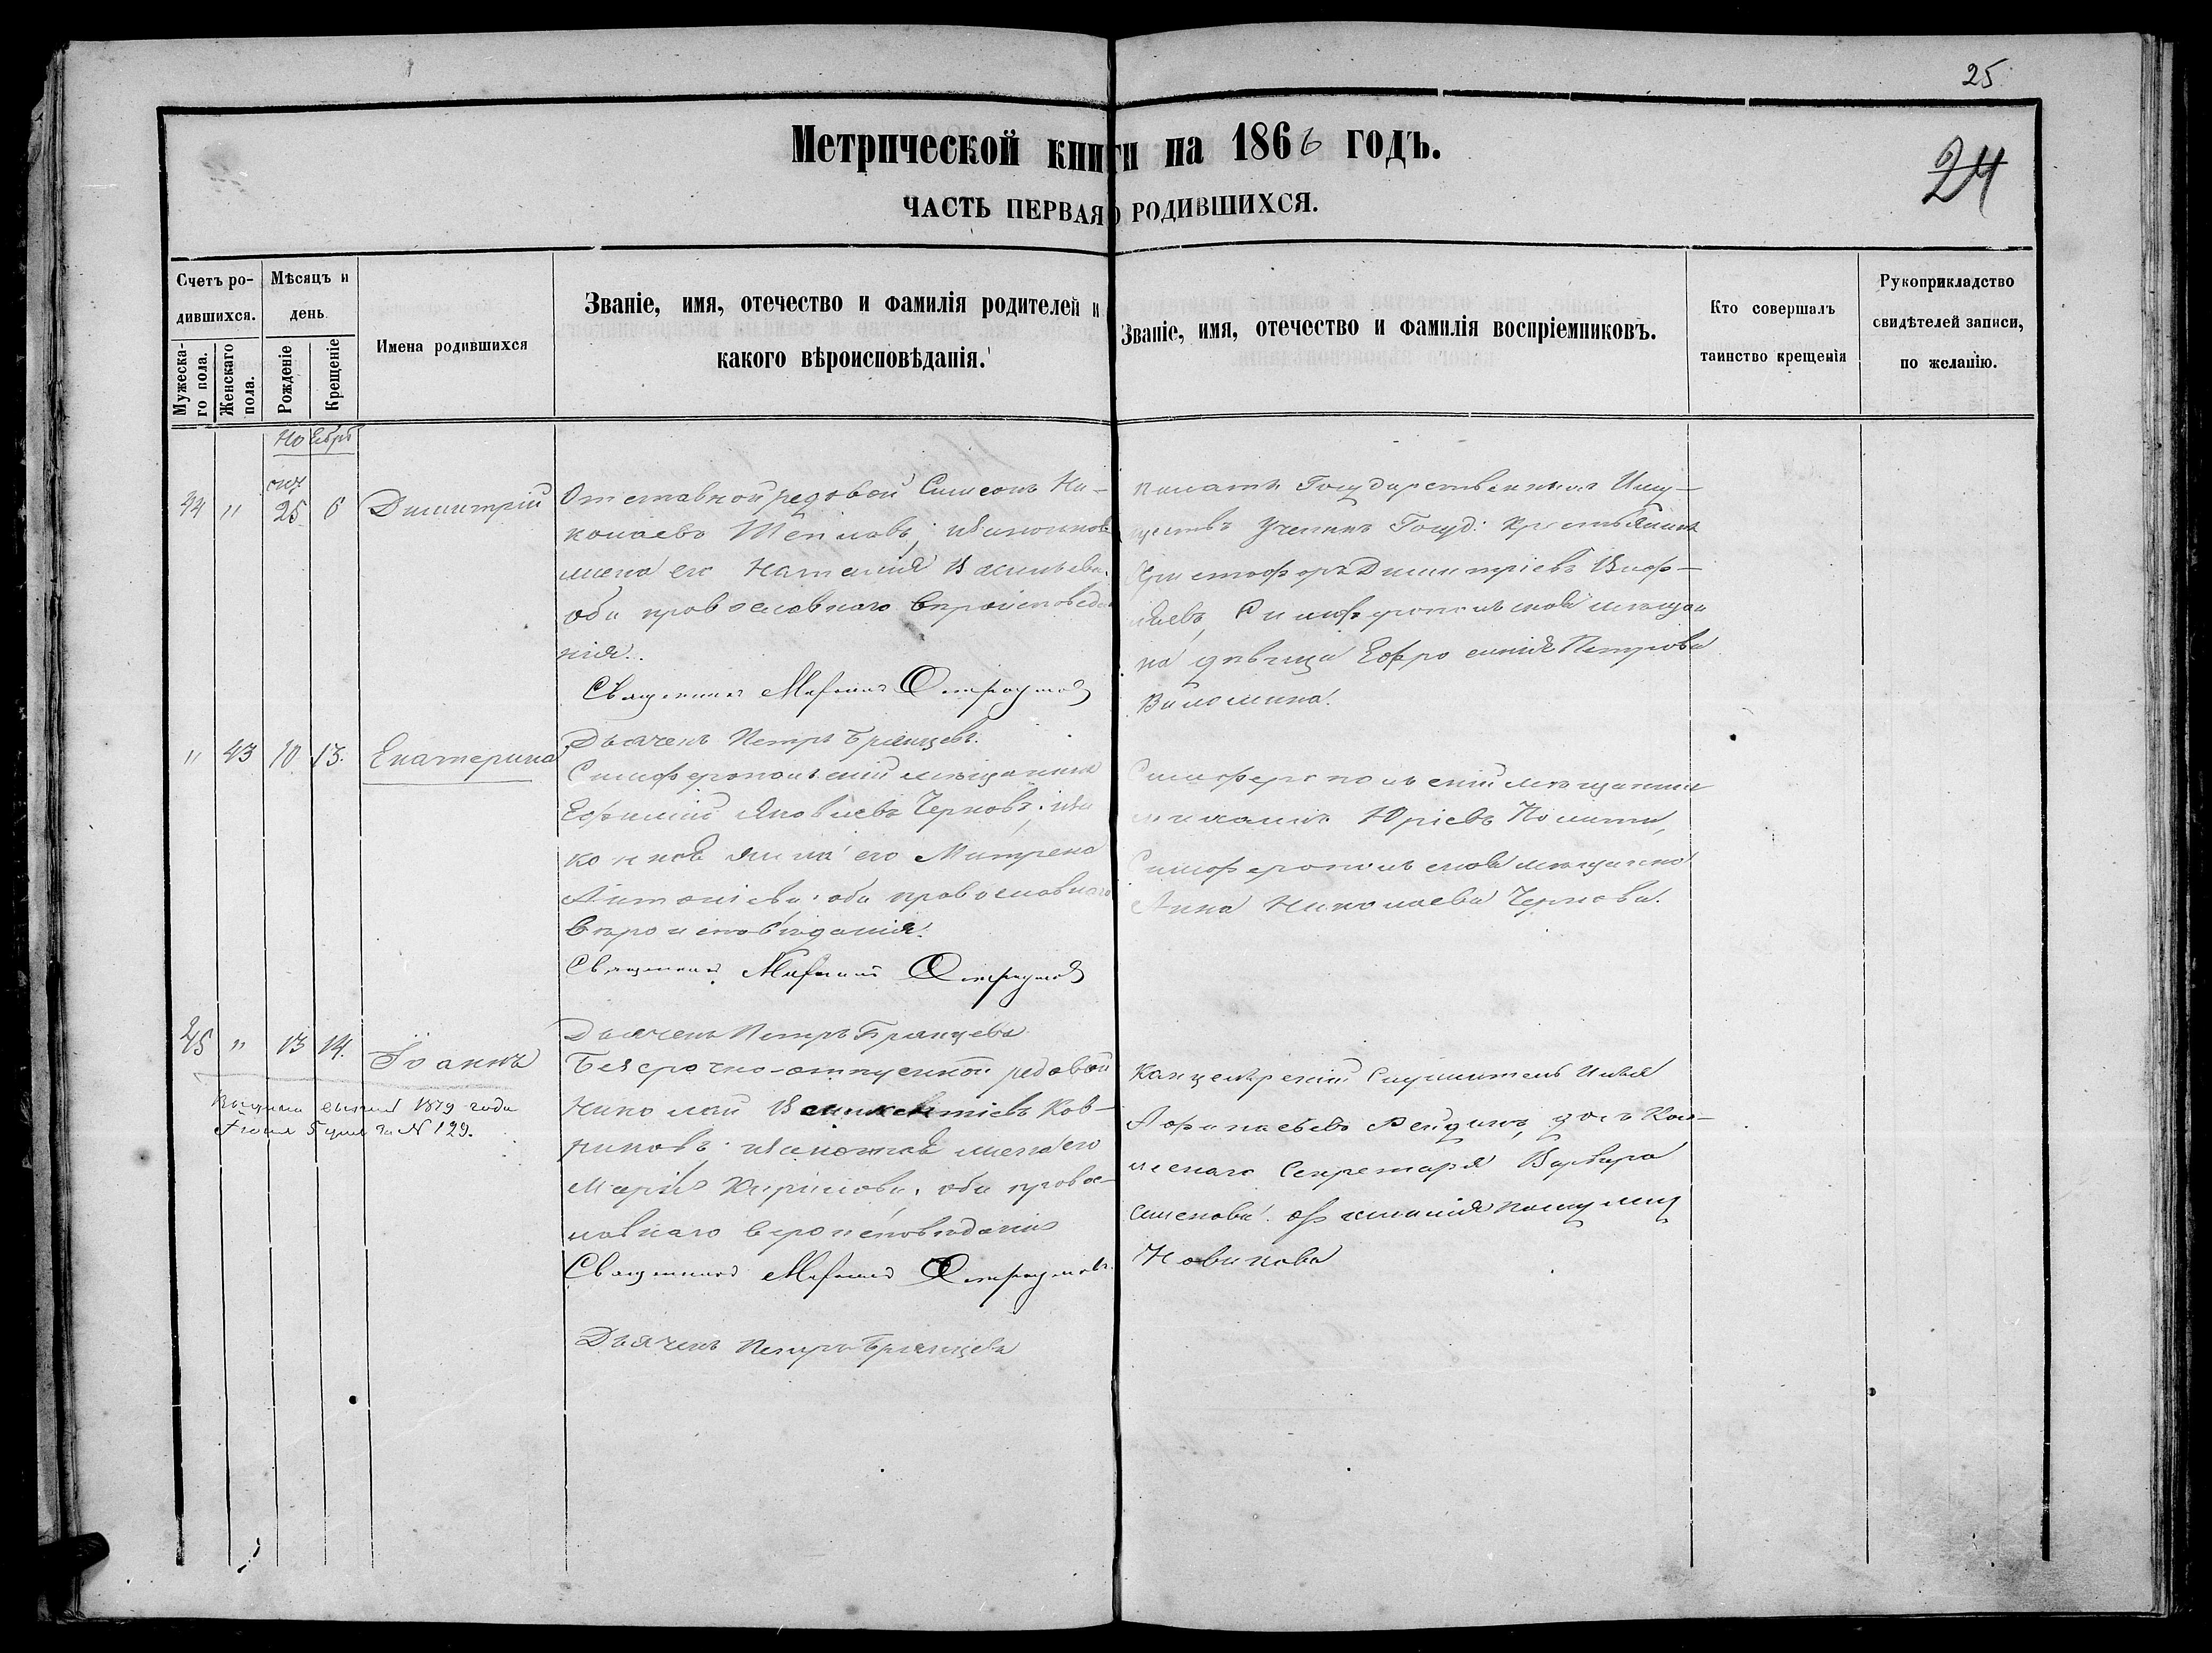 25
24
Метрической книги на 1866 годъ.
ЧАСТЬ ПЕРВАЯ О РОДИВШИХСЯ.
Счетъ ро-
дившихся.
Мужеска-
го пола.
Женскаго
пола.
Мѣсяцъ и
день
Рожденіе
Крещеніе
Имена родившихся
Званіе, имя, отечество и фамилія родителей и
какого вѣроисповѣданія.
Званіе, имя, отечество и фамилія воспріемниковъ.
Кто совершалъ
таинство крещенія
Рукоприкладство
свидѣтелей записи,
по желанію.
Ноебрь
44 " окт 25 6 Димитрій
Отставной редовой Симеонъ Ни-
колаевъ Тепловъ; изаконнов
жена его Наталия Васильева.
оба православнаго вѣроисповеда
ния.
Священникъ
Дьячекъ Петръ Брянцевъ.
Палаты Государственныхъ Иму-
ществъ Госуд: Крестьянинъ
Христофоръ Димитріевъ
Симферопольская мещан
ка девица Ефросиния Петрова
" 43 10 13. Екатерина
Симферопольский мещанинъ
Ефимий Яковлевъ Черновъ; иза
конная жина его Матрена
Антониева оба православнаго
вѣроисповѣдания.
Священникъ
Дьячекъ Петръ Брянцевъ
Симферопольский мещанинъ
Михаилъ Юріевъ
Симферопольская мещанка
Анна Николаева Чернова.
45 " 13 14. Іоаннъ
1879 года
5 дня за N 129.
Безсрочно-отпускной редовой
Николай Викентиевъ Ков-
риковъ; изаконная жена его
Мария Кирилова, оба правос-
лавнаго вероисповѣдания
Священникъ
Дьячекъ Петръ Брянцевъ
Канцелярский Служитель Илья
Афанасьевъ дочь Кол-
лежскаго Секретаря Варвара
Семенова. фамилия по мужу
Новикова